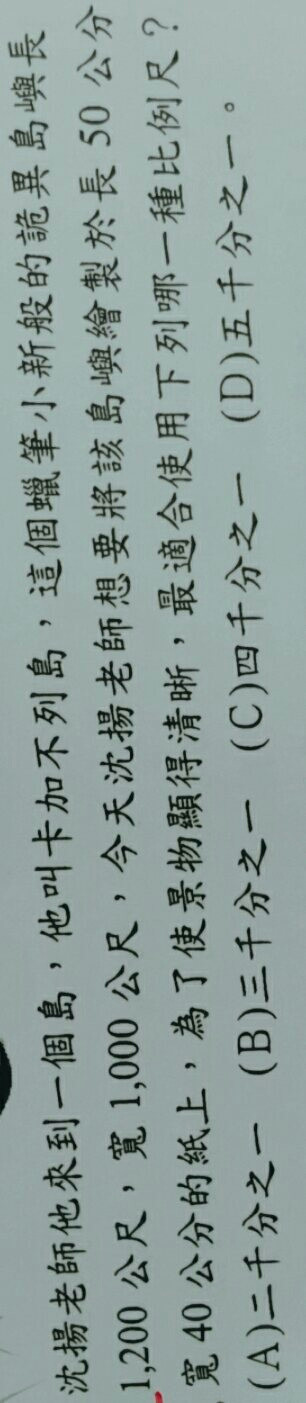 沈揚老師他來到一個島，他叫卡加不列島，這個蠟筆小新般的詭異島嶼長
1,200 公尺，寬 1,000 公尺，今天沈揚老師想要將該島嶼繪製於長 50 公分
寬 40 公分的紙上，為了使景物顯得清晰，最適合使用下列哪一種比例尺？
(A)二千分之一 (B)三千分之一 (C)四千分之一 (D)五千分之一。